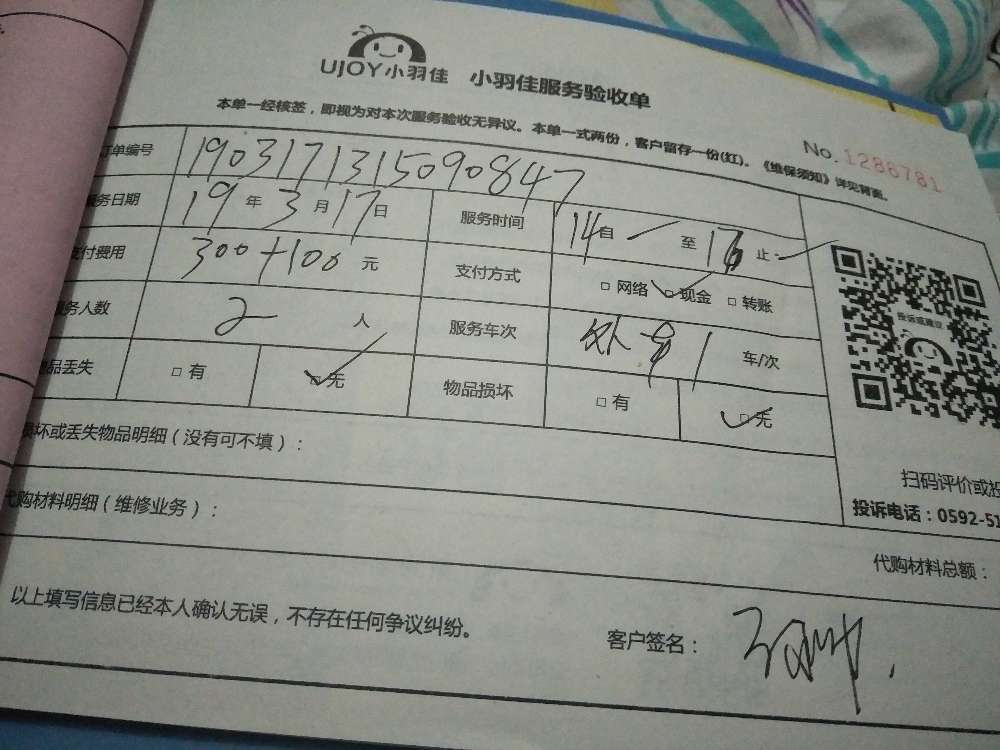 UJOY小羽佳 小羽佳服务验收单
本单一经核签，即视为对本次服务验收无异议。本单一式两份，客户留存一份(红)。《维保须知》详见背面。
No.1286781
订单编号 190317131509 0847
服务日期 19年3月17日 服务时间 14自 至 止
支付费用 300+100元 支付方式 □网络 □现金 □转账
服务人数 2人 服务车次 1 车/次
物品丢失 □有 □无 物品损坏 □有 □无
投诉或建议
扫码评价或投
投诉电话：0592-51
损坏或丢失物品明细（没有可不填）：
代购材料明细（维修业务）：
代购材料总额：
以上填写信息已经本人确认无误，不存在任何争议纠纷。
客户签名：